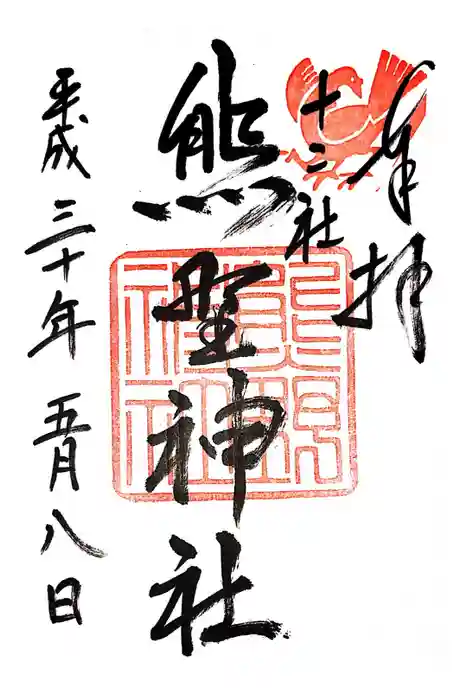 奉拝
十二社
熊野神社
熊野神社
平成三十年五月八日